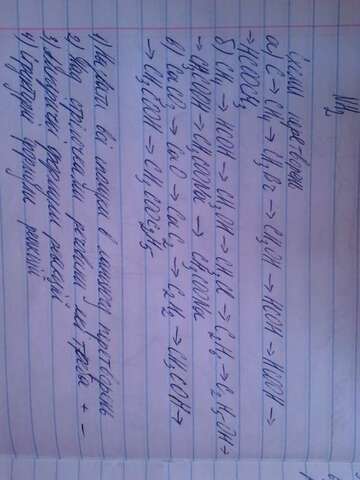 NH₂
Схеми перетворень
а) C → CH₄ → CH₃Br → CH₃OH → HCOH → HCOOH →
→ HCOOCH₃
б) CH₄ → HCOH → CH₃OH → CH₃Cl → C₂H₂ → C₂H₅OH →
→ CH₃COOH → CH₃COONa → CH₃COONa
в) CaCO₃ → CaO → CaC₂ → C₂H₂ → CH₃COH →
→ CH₃COOH → CH₃COOC₂H₅
1) Назвати всі сполуки в ланцюгах перетворень
2) Над стрілками речовини які треба + -
3) Молекулярні формули речовин
4) Структурні формули реакцій